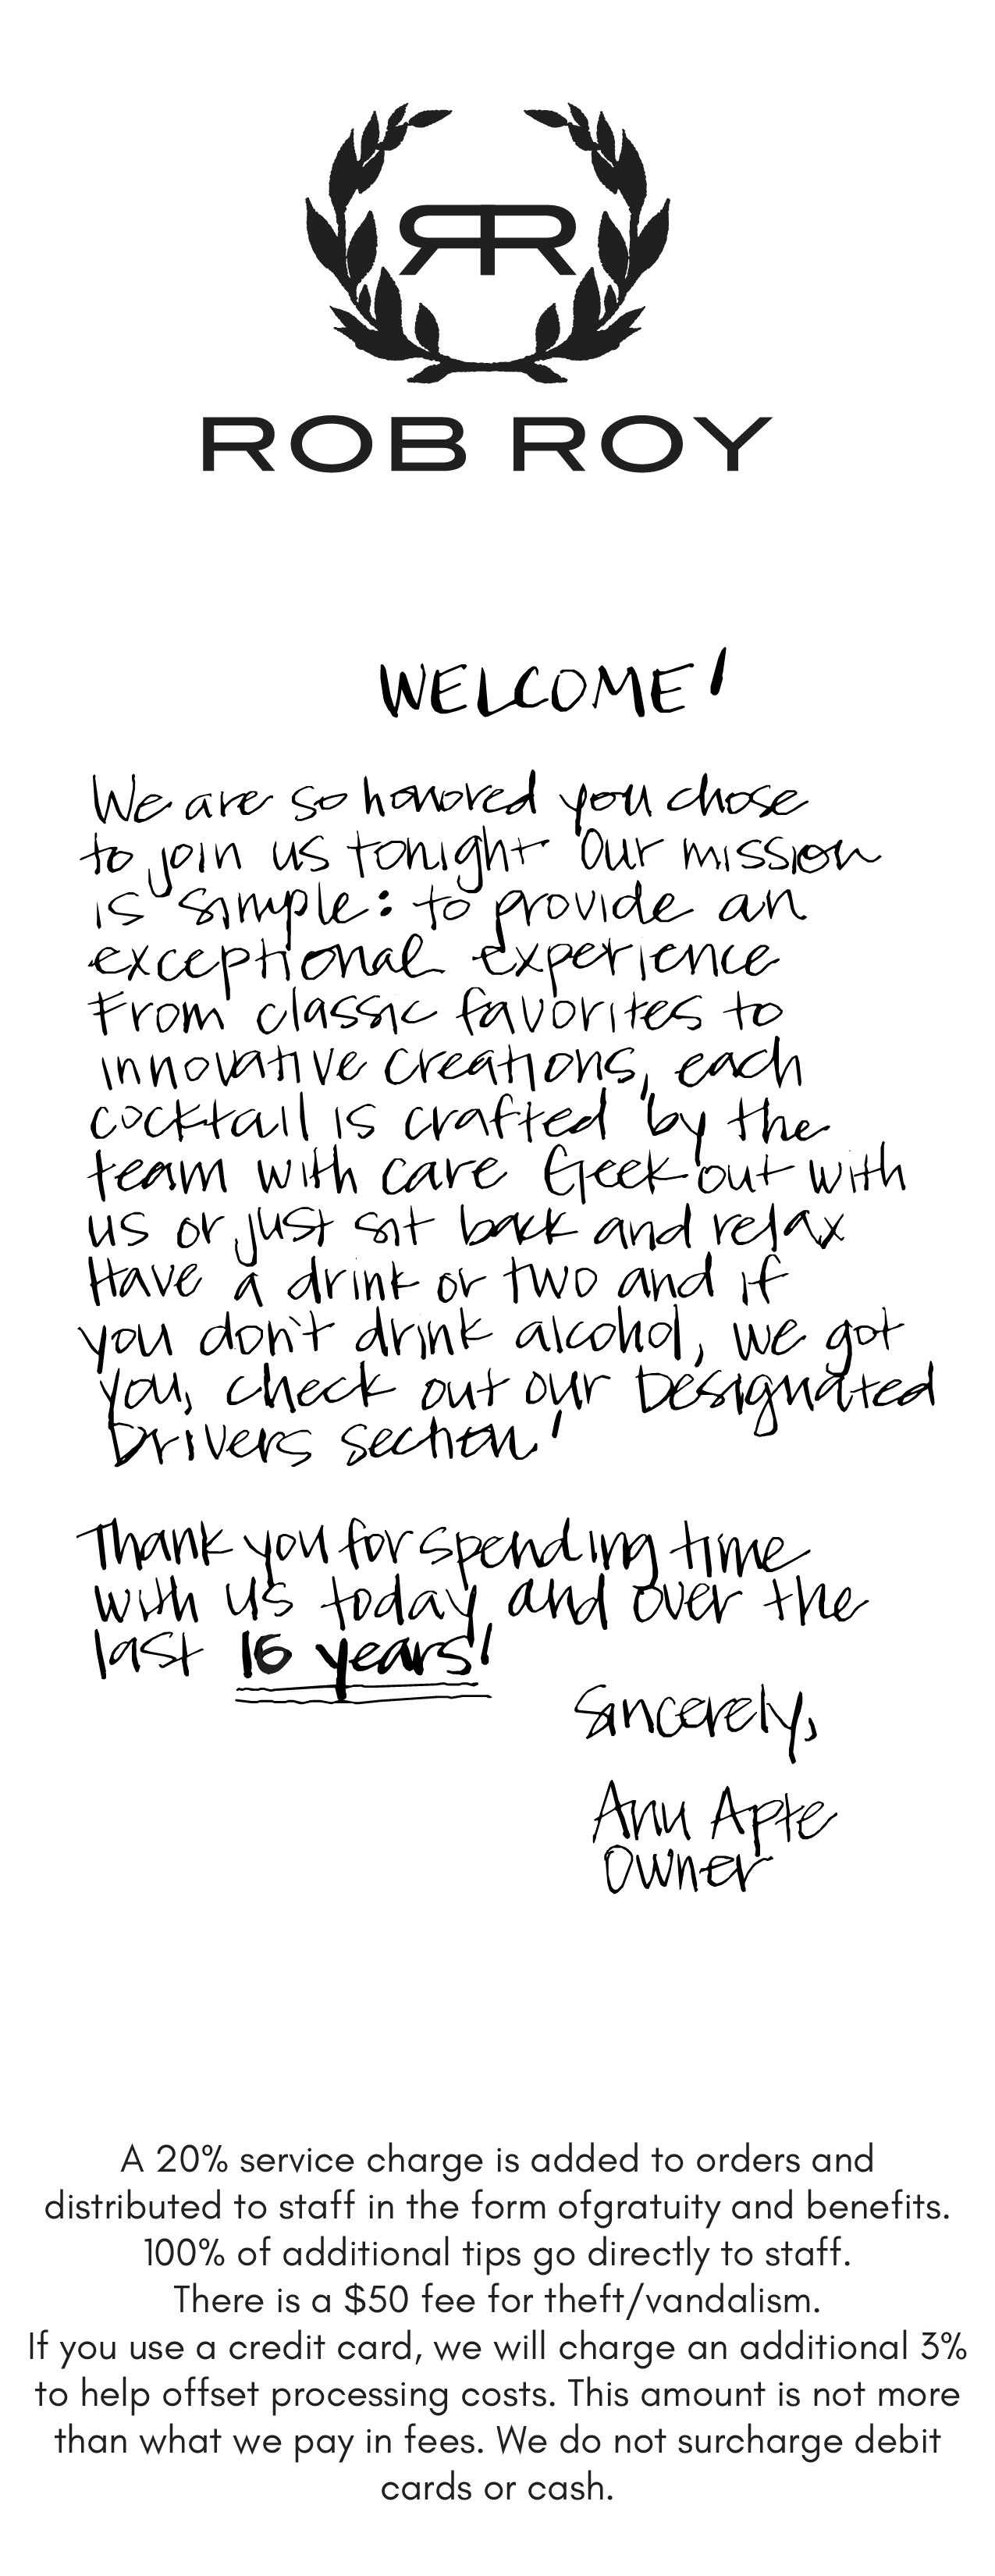 RR
ROB ROY
WELCOME!
We are so honored you chose
to join us tonight Our mission
is simple: to provide an
exceptional experience
From classic favorites to
innovative creations, each
cocktail is crafted by the
team with care Geek out with
us or just sit back and relax
Have a drink or two and if
you don't drink alcohol, we got
you, check out our Designated
Drivers section!
Thank you for spending time
with us today and over the
last 16 years!
Sincerely,
Anu Apte
Owner
A 20% service charge is added to orders and
distributed to staff in the form ofgratuity and benefits.
100% of additional tips go directly to staff.
There is a $50 fee for theft/vandalism.
If you use a credit card, we will charge an additional 3%
to help offset processing costs. This amount is not more
than what we pay in fees. We do not surcharge debit
cards or cash.